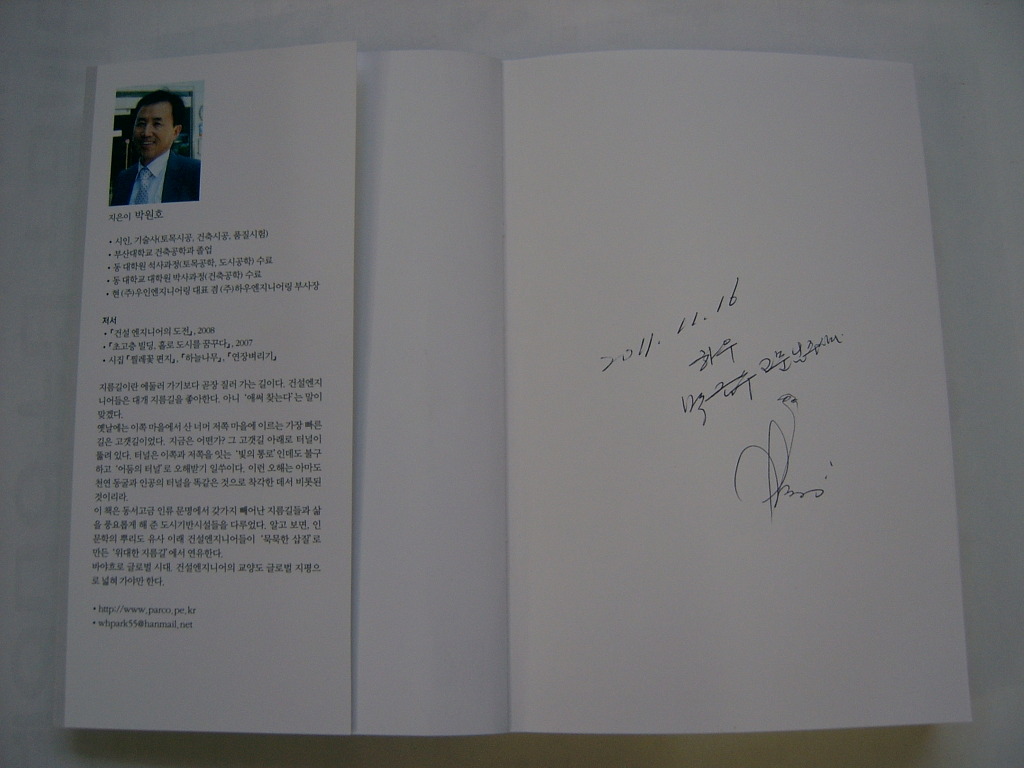 지은이 박원호
• 시인, 기술사(토목시공, 건축시공, 품질시험)
• 부산대학교 건축공학과 졸업
• 동 대학원 석사과정(토목공학, 도시공학) 수료
• 동 대학교 대학원 박사과정(건축공학) 수료
• 현 (주)우인엔지니어링 대표 겸 (주)하우엔지니어링 부사장
저서
• 『건설 엔지니어의 도전』, 2008
• 『초고층 빌딩, 홀로 도시를 꿈꾸다』, 2007
• 시집 『찔레꽃 편지』, 『하늘나무』, 『연장벼리기』
지름길이란 에둘러 가기보다 곧장 질러 가는 길이다. 건설엔지
니어들은 대개 지름길을 좋아한다. 아니 ‘애써 찾는다’는 말이
맞겠다.
옛날에는 이쪽 마을에서 산 너머 저쪽 마을에 이르는 가장 빠른
길은 고갯길이었다. 지금은 어떤가? 그 고갯길 아래로 터널이
뚫려 있다. 터널은 이쪽과 저쪽을 잇는 ‘빛의 통로’인데도 불구
하고 ‘어둠의 터널’로 오해받기 일쑤이다. 이런 오해는 아마도
천연 동굴과 인공의 터널을 똑같은 것으로 착각한 데서 비롯된
것이리라.
이 책은 동서고금 인류 문명에서 갖가지 빼어난 지름길들과 삶
을 풍요롭게 해 준 도시기반시설들을 다루었다. 알고 보면, 인
문학의 뿌리도 유사 이래 건설엔지니어들이 ‘묵묵한 삽질’로
만든 ‘위대한 지름길’에서 연유한다.
바야흐로 글로벌 시대. 건설엔지니어의 교양도 글로벌 지평으
로 넓혀 가야만 한다.
• http://www.parco.pe.kr
• whpark55@hanmail.net
2011. 11. 16
하우
고문님